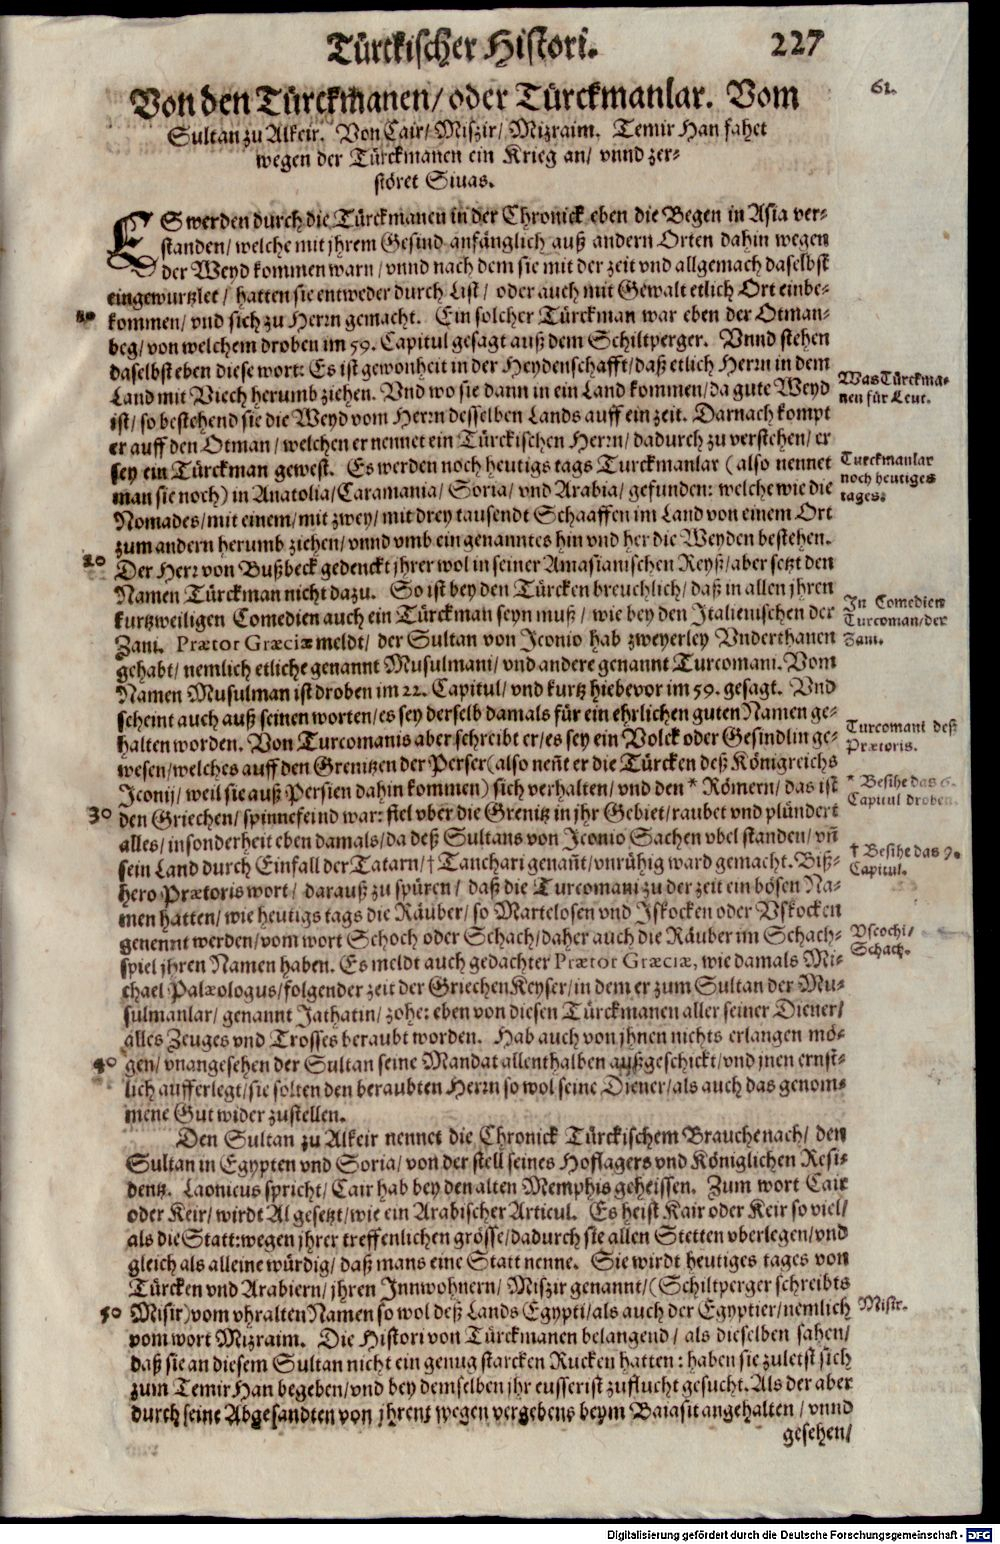 Türckischer Histori. 227
Von den Türckmanen/ oder Türckmanlar. Vom
61.
Sultan zu Alkeir. Von Cair/ Miszir/ Mizraim. Temir Han fahet
wegen der Türckmanen ein Krieg an/ vnnd zer-
störet Siuas.
ES werden durch die Türckmanen in der Chronick eben die Begen in Asia ver-
standen/ welche mit jhrem Gesind anfänglich auß andern Orten dahin wegen
der Weyd kommen warn/ vnnd nach dem sie mit der zeit vnd allgemach daselbst
eingewurtzlet/ hatten sie entweder durch List/ oder auch mit Gewalt etlich Ort einbe-
kommen/ vnd sich zu Herrn gemacht. Ein solcher Türckman war eben der Otman-
beg/ von welchem droben im 59. Capitul gesagt auß dem Schiltperger. Vnnd stehen
daselbst eben diese wort: Es ist gewonheit in der Heydenschafft/ daß etlich Herrn in dem
Land mit Viech herumb ziehen. Vnd wo sie dann in ein Land kommen/ da gute Weyd
ist/ so bestehend sie die Weyd vom Herrn desselben Lands auff ein zeit. Darnach kompt
er auff den Otman/ welchen er nennet ein Türckischen Herrn/ dadurch zu verstehen/ er
sey ein Türckman gewest. Es werden noch heutigs tags Turckmanlar (also nennet
man sie noch) in Anatolia/ Caramania/ Soria/ vnd Arabia/ gefunden: welche wie die
Nomades/ mit einem/ mit zwey/ mit drey tausendt Schaaffen im Land von einem Ort
zum andern herumb ziehen/ vnnd vmb ein genanntes hin vnd her die Weyden bestehen.
20
Der Herr von Bußbeck gedenckt jhrer wol in seiner Amasianischen Reyß/ aber setzt den
Namen Türckman nicht dazu. So ist bey den Türcken breuchlich/ daß in allen jhren
kurtzweiligen Comedien auch ein Türckman seyn muß/ wie bey den Italienischen der
Zani. Prætor Græciæ meldt/ der Sultan von Iconio hab zweyerley Vnderthanen
gehabt/ nemlich etliche genannt Musulmani/ vnd andere genannt Turcomani. Vom
Namen Musulman ist droben im 22. Capitul/ vnd kurtz hiebevor im 59. gesagt. Vnd
scheint auch auß seinen worten/ es sey derselb damals für ein ehrlichen guten Namen ge-
halten worden. Von Turcomanis aber schreibt er/ es sey ein Volck oder Gesindlin ge-
wesen/ welches auff den Grenitzen der Perser (also neñt er die Türcken deß Königreichs
Iconij/ weil sie auß Persien dahin kommen) sich verhalten/ vnd den * Römern/ das ist
30
den Griechen/ spinnefeind war: fiel vber die Grenitz in jhr Gebiet/ raubet vnd plündert
alles/ insonderheit eben damals/ da deß Sultans von Iconio Sachen vbel standen/ vñ
sein Land durch Einfall der Tatarn/ † Tanchari genañt/ vnrühig ward gemacht. Biß-
hero Prætoris wort/ darauß zu spüren/ daß die Turcomani zu der zeit ein bösen Na-
men hatten/ wie heutigs tags die Räuber/ so Martelosen vnd Iskocken oder Vskocken
genennt werden/ vom wort Schoch oder Schach/ daher auch die Räuber im Schach-
spiel jhren Namen haben. Es meldt auch gedachter Prætor Græciæ, wie damals Mi-
chael Palæologus/ folgender zeit der Griechen Keyser/ in dem er zum Sultan der Mu-
sulmanlar/ genannt Jathatin/ zohe: eben von diesen Türckmanen aller seiner Diener/
alles Zeuges vnd Trosses beraubt worden. Hab auch von jhnen nichts erlangen mö-
40
gen/ vnangesehen der Sultan seine Mandat allenthalben außgeschickt/ vnd jnen ernst-
lich aufferlegt/ sie solten den beraubten Herrn so wol seine Diener/ als auch das genom-
mene Gut wider zustellen.
Den Sultan zu Alkeir nennet die Chronick Türckischem Brauche nach/ den
Sultan in Egypten vnd Soria/ von der stell seines Hoflagers vnd Königlichen Resi-
dentz. Laonicus spricht/ Cair hab bey den alten Memphis geheissen. Zum wort Cair
oder Keir/ wirdt Al gesetzt/ wie ein Arabischer Articul. Es heist Kair oder Keir so viel/
als die Statt: wegen jhrer treffenlichen grösse/ dadurch sie allen Stetten vberlegen/ vnd
gleich als alleine würdig/ daß mans eine Statt nenne. Sie wirdt heutiges tages von
Türcken vnd Arabiern/ jhren Innwohnern/ Miszir genannt/ (Schiltperger schreibts
50
Misir) vom vhralten Namen so wol deß Lands Egypti/ als auch der Egyptier/ nemlich
vom wort Mizraim. Die Histori von Türckmanen belangend/ als dieselben sahen/
daß sie an diesem Sultan nicht ein genug starcken Rucken hatten: haben sie zuletst sich
zum Temir Han begeben/ vnd bey demselben jhr eusserist zuflucht gesucht. Als der aber
durch seine Abgesandten von jhrent wegen vergebens beym Baiasit angehalten/ vnnd
gesehen/
Was Türckma-
nen für Leut.
Turckmanlar
noch heutiges
tages.
In Comedien
Turcoman/ der
Zani.
Turcomani deß
Prætoris.
* Besihe das 6.
Capitul droben.
† Besihe das 9.
Capitul.
Vscochi/
Schach.
Misir.
Digitalisierung gefördert durch die Deutsche Forschungsgemeinschaft - DFG